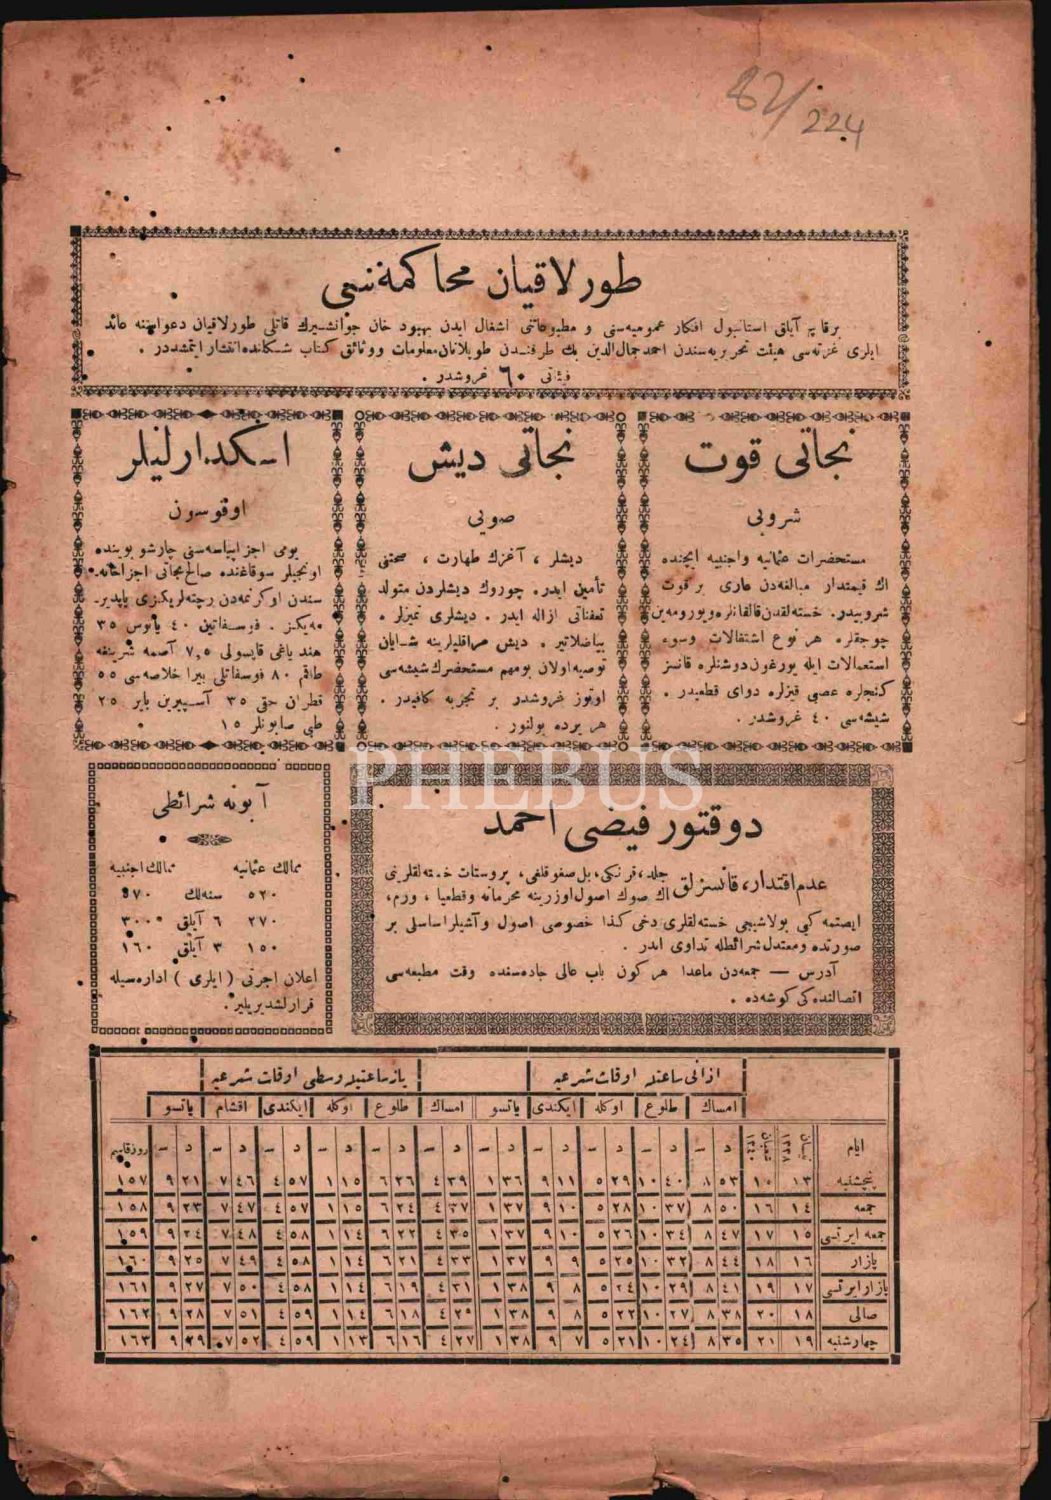 82/224
طورلاقیان محاكمه‌سی
برقاچ آیاق استانبول افكار عمومیه‌سنی و مطبوعاتنی اشغال ایدن بهبود خان جوانشیرك قاتلی طورلاقیان دعواسنه عائد
ایلری غزته‌سی هیئت تحریریه‌سندن احمد جمال‌الدین بك طرفندن طوپلانان معلومات و وثائق كتاب شكلنده انتشار ایتمشدر .
فیئاتی ٦٠ غروشدر .
نجاتی قوت
شروبی
مستحضرات عثمانیه و اجنبیه ایچنده
اك قیمتدار مبالغه‌دن عاری بر قوت
شروبیدر. خسته‌لقدن قالقانلره و یورومه‌ین
چوجقلره هر نوع اشتغالات وسوء
استعمالات ایله یورغون دوشنلره قانسز
كنجلره عصبی قیزلره دوای قطعیدر .
شیشه‌سی ٤٠ غروشدر .
نجاتی دیش
صویی
دیشلر ، آغزك طهارت ، صحتنی
تأمین ایدر. چوروك دیشلردن متولد
تعفناتی ازاله ایدر . دیشلری تمیزلر .
بیاضلاتیر . دیش مراقلیلرینه شایان
توصیه اولان بو مهم مستحضرك شیشه‌سی
اوتوز غروشدر بر تجربه كافیدر .
هر یرده بولنور .
اسكدارلیلر
اوقوسون
یومی اجزا پیاسه‌سنی چارشو بوینده
اونجیلر سوقاغنده صالح نجاتی اجزاخانه‌
سندن اوكرنمه‌دن رچته‌لریكزی یاپدیر
مه‌یكز . فوسفاتین ٤٠ پانوس ٣٥
هند یاغی قاپسولی ٧,٥ آصمه شرینغه
طاقم ٨٠ فوسفاتلی بیرا خلاصه‌سی ٥٥
قطران حقی ٣٥ آسپیرین بایر ٢٥
طبی صابونلر ١٥
دوقتور فیضی احمد
عدم اقتدار، قانسزلق جلد، فرنكی، بل صغوقلغی، پروستات خسته‌لقلرینی
اك صوك اصول اوزرینه محرمانه و قطعیا ، ورم،
ایصتمه كبی بولاشیجی خسته‌لقلری دخی كذا خصوصی اصول و آشیلر اساسلی بر
صورتده و معتدل شرائطله تداوی ایدر .
آدرس — جمعه‌دن ماعدا هر كون باب عالی جاده‌سنده وقت مطبعه‌سی
اتصالنده‌كی كوشه‌ده .
آبونه شرائطی
ممالك عثمانیه ممالك اجنبیه
٥٢٠ سنه‌لك ٥٧٠
٢٧٠ ٦ آیلق ٣٠٠
١٥٠ ٣ آیلق ١٦٠
اعلان اجرتی ( ایلری ) اداره‌سیله
قرارلشدیریلیر.
PHEBUS
اذانی ساعتله اوقات شرعیه یاز ساعتیله وسطی اوقات شرعیه
امساك طلوع اوكله ایكندی یاتسو امساك طلوع اوكله ایكندی اقشام یاتسو
ایام نیسان ١٣٣٨ شعبان ١٣٤٠ د س د س د س د س د س د س د س د س د س د س د س روز قاسم
پنجشنبه ١٣ ١٥ ٥٣ ٨ ٤٠ ١٠ ٢٩ ٥ ١١ ٩ ٣٦ ١ ٣٩ ٤ ٢٦ ٦ ١٥ ١ ٥٧ ٤ ٤٦ ٧ ٢١ ٩ ١٥٧
جمعه ١٤ ١٦ ٥٠ ٨ ٣٧ ١٠ ٢٨ ٥ ١٠ ٩ ٣٧ ١ ٣٧ ٤ ٢٤ ٦ ١٥ ١ ٥٧ ٤ ٤٧ ٧ ٢٣ ٩ ١٥٨
جمعه ایرتسی ١٥ ١٧ ٤٧ ٨ ٣٤ ١٠ ٢٦ ٥ ١٠ ٩ ٣٧ ١ ٣٥ ٤ ٢٢ ٦ ١٤ ١ ٥٨ ٤ ٤٨ ٧ ٢٤ ٩ ١٥٩
پازار ١٦ ١٨ ٤٤ ٨ ٣٢ ١٠ ٢٥ ٥ ٩ ٩ ٣٧ ١ ٣٣ ٤ ٢١ ٦ ١٤ ١ ٥٨ ٤ ٤٩ ٧ ٢٥ ٩ ١٦٠
پازار ایرتسی ١٧ ١٩ ٤١ ٨ ٢٩ ١٠ ٢٤ ٥ ٨ ٩ ٣٨ ١ ٣١ ٤ ١٩ ٦ ١٤ ١ ٥٨ ٤ ٥٠ ٧ ٢٧ ٩ ١٦١
صالی ١٨ ٢٠ ٣٨ ٨ ٢٧ ١٠ ٢٢ ٥ ٨ ٩ ٣٨ ١ ٢٩ ٤ ١٨ ٦ ١٤ ١ ٥٩ ٤ ٥١ ٧ ٢٨ ٩ ١٦٢
چهارشنبه ١٩ ٢١ ٣٥ ٨ ٢٤ ١٠ ٢١ ٥ ٧ ٩ ٣٨ ١ ٢٧ ٤ ١٦ ٦ ١٣ ١ ٥٩ ٤ ٥٢ ٧ ٢٩ ٩ ١٦٣